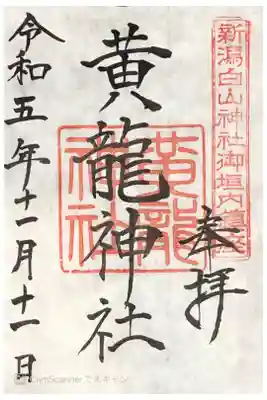 新潟白山神社御垣内鎮座
奉拝
黄龍神社
黄龍神社
令和五年十一月十一日
CamScanner でスキャン